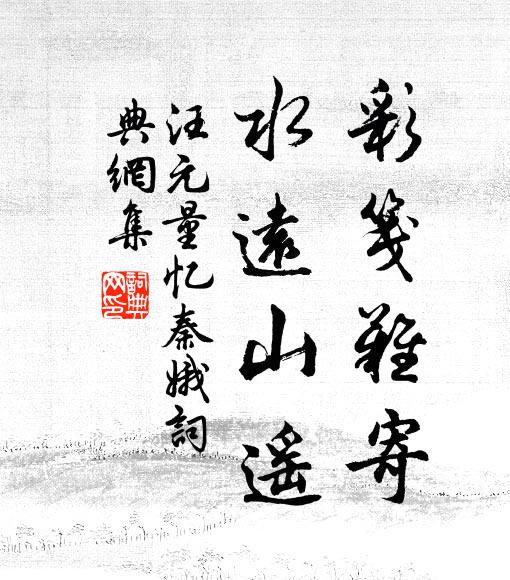 彩笺難寄
水遠山遥
汪元量忆秦娥詞
典網集
詞典網印